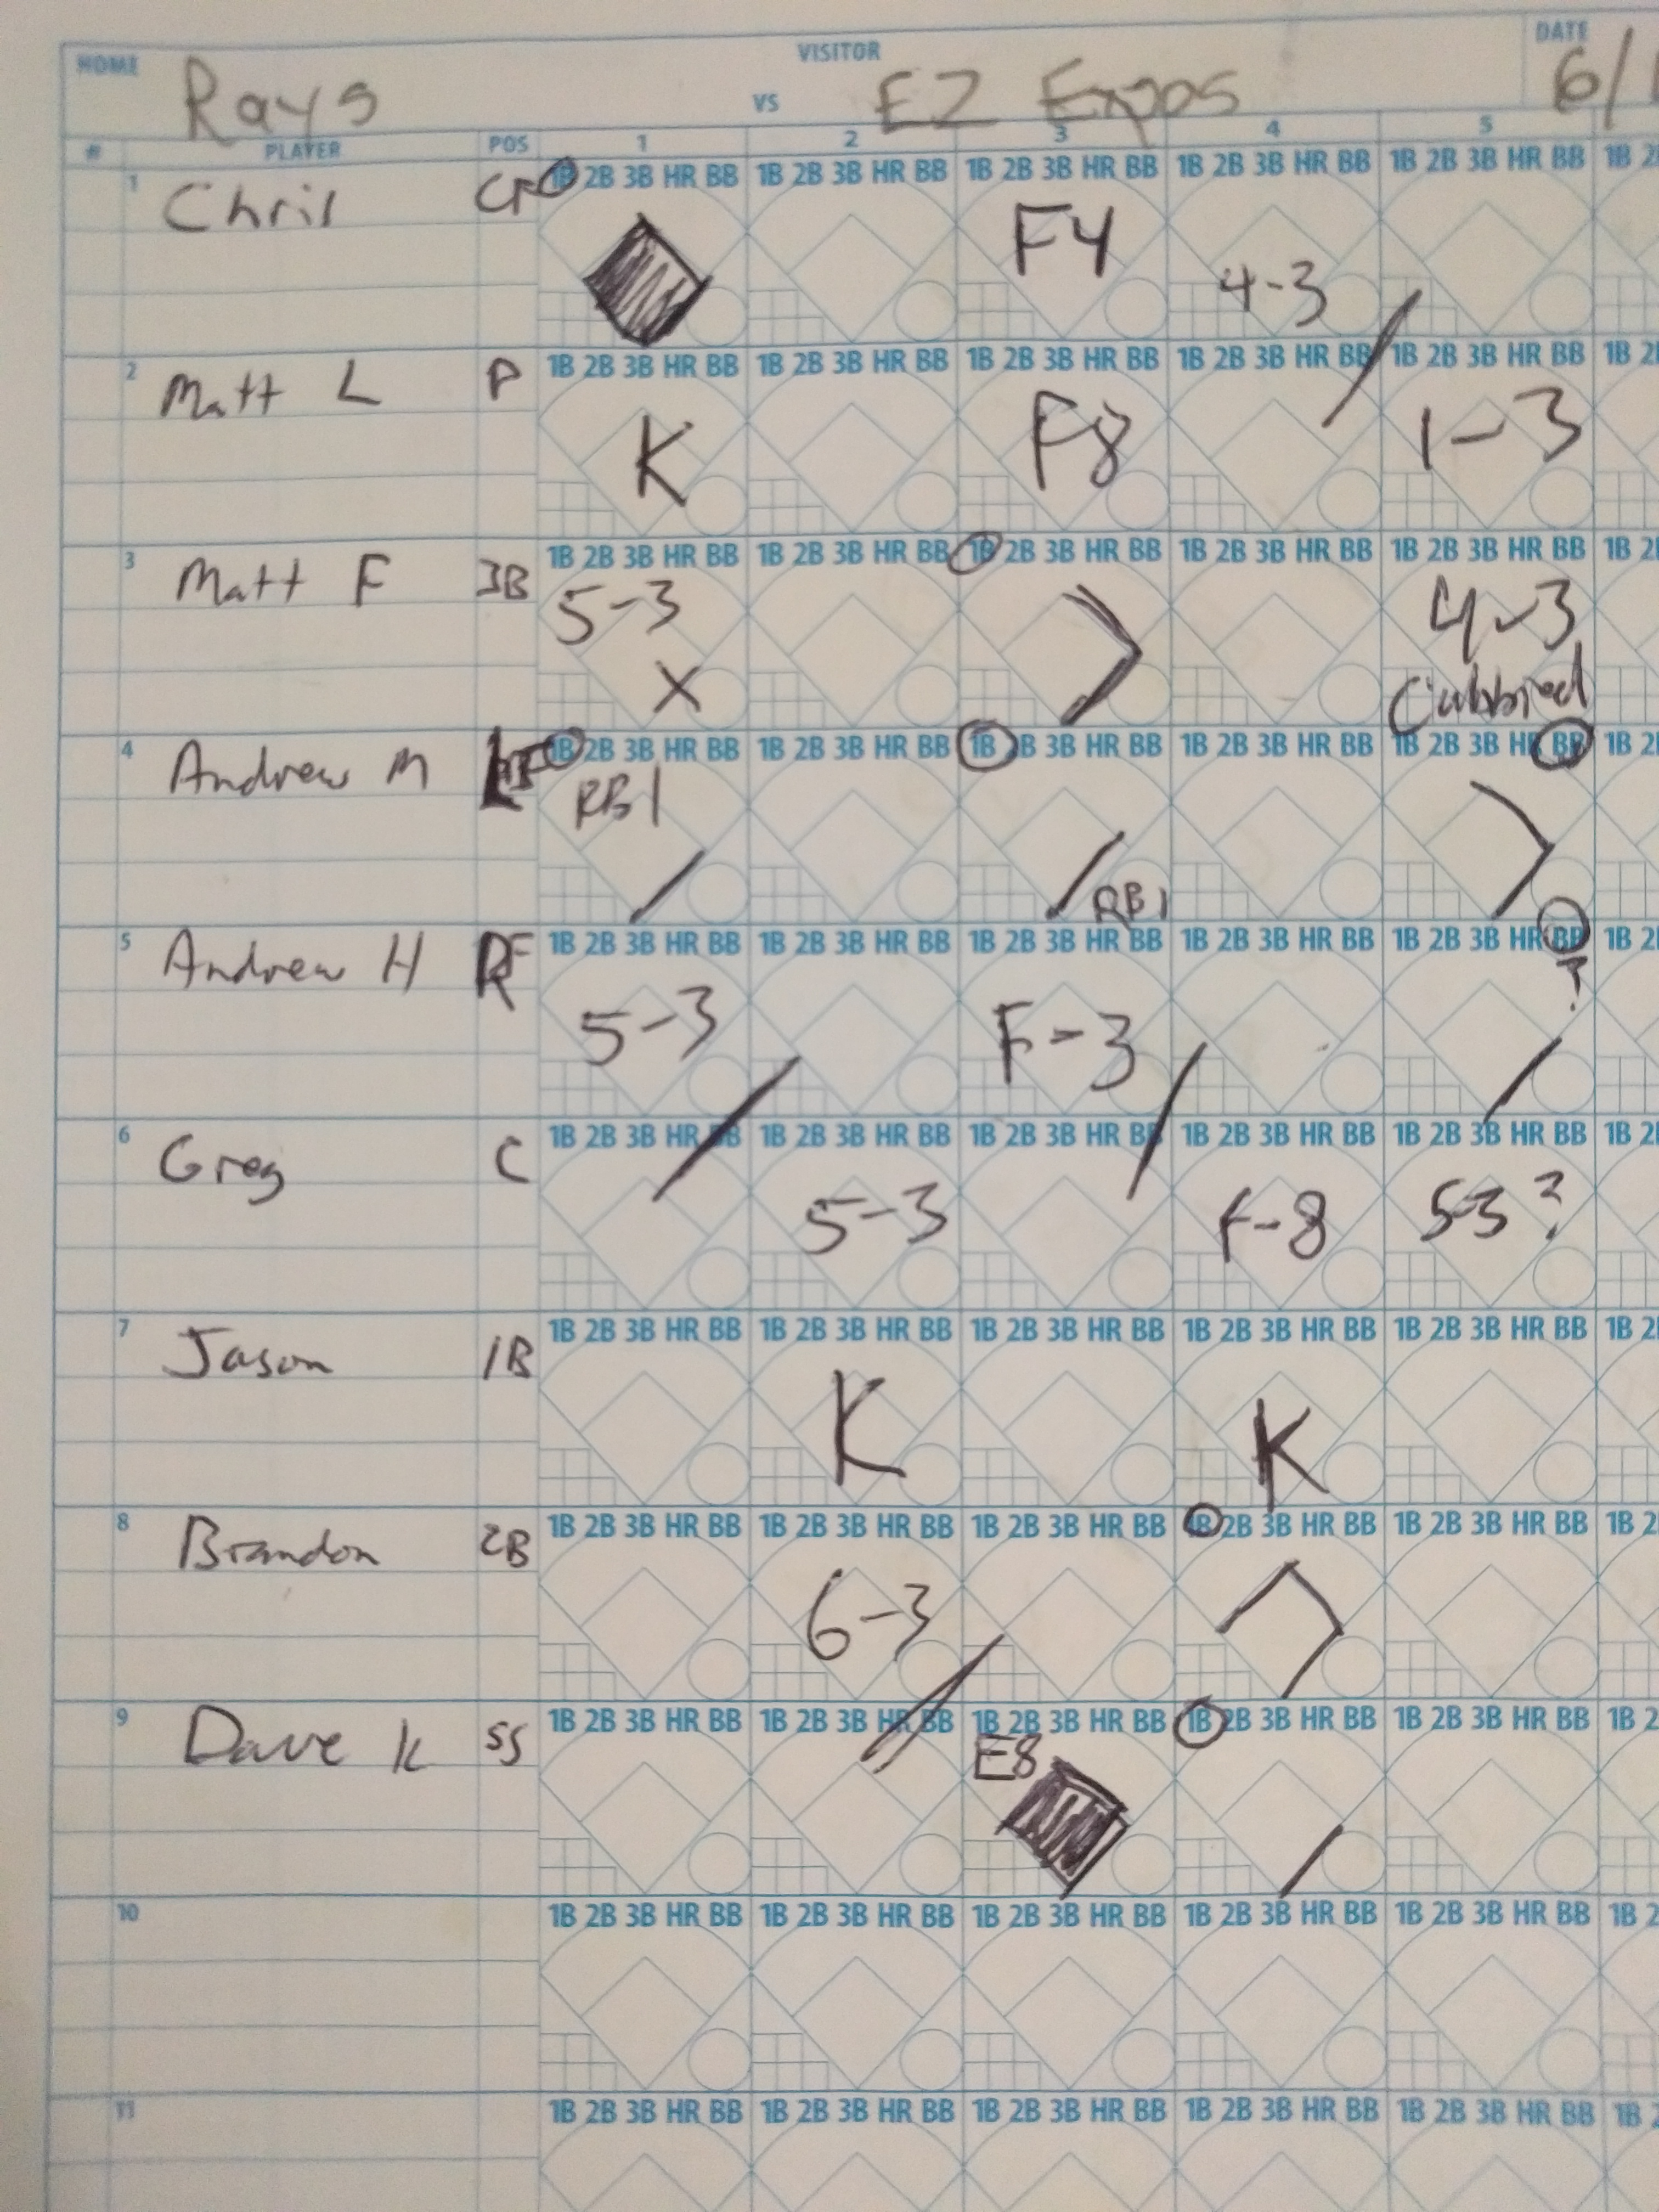 HOME Rays VS VISITOR EZ Expos DATE 6/1
# PLAYER POS 1 2 3 4 5
1 Chris CF 1B 2B 3B HR BB 1B 2B 3B HR BB 1B 2B 3B HR BB 1B 2B 3B HR BB 1B 2B 3B HR BB 1B 2
F4 4-3
2 Matt L P 1B 2B 3B HR BB 1B 2B 3B HR BB 1B 2B 3B HR BB 1B 2B 3B HR BB 1B 2B 3B HR BB 1B 2
K F8 1-3
3 Matt F 3B 1B 2B 3B HR BB 1B 2B 3B HR BB 1B 2B 3B HR BB 1B 2B 3B HR BB 1B 2B 3B HR BB 1B 2
5-3 4-3
X
4 Andrew M 1B 2B 3B HR BB 1B 2B 3B HR BB 1B 2B 3B HR BB 1B 2B 3B HR BB 1B 2B 3B HR BB 1B 2
RBI
RBI
5 Andrew H RF 1B 2B 3B HR BB 1B 2B 3B HR BB 1B 2B 3B HR BB 1B 2B 3B HR BB 1B 2B 3B HR BB 1B 2
?
5-3 F-3
6 Greg C 1B 2B 3B HR BB 1B 2B 3B HR BB 1B 2B 3B HR BB 1B 2B 3B HR BB 1B 2B 3B HR BB 1B 2
5-3 F-8 5-3?
7 Jason 1B 1B 2B 3B HR BB 1B 2B 3B HR BB 1B 2B 3B HR BB 1B 2B 3B HR BB 1B 2B 3B HR BB 1B 2
K K
8 Brandon 2B 1B 2B 3B HR BB 1B 2B 3B HR BB 1B 2B 3B HR BB 1B 2B 3B HR BB 1B 2B 3B HR BB 1B 2
6-3
9 Dave K SS 1B 2B 3B HR BB 1B 2B 3B HR BB 1B 2B 3B HR BB 1B 2B 3B HR BB 1B 2B 3B HR BB 1B 2
E8
10 1B 2B 3B HR BB 1B 2B 3B HR BB 1B 2B 3B HR BB 1B 2B 3B HR BB 1B 2B 3B HR BB 1B 2
11 1B 2B 3B HR BB 1B 2B 3B HR BB 1B 2B 3B HR BB 1B 2B 3B HR BB 1B 2B 3B HR BB 1B 2